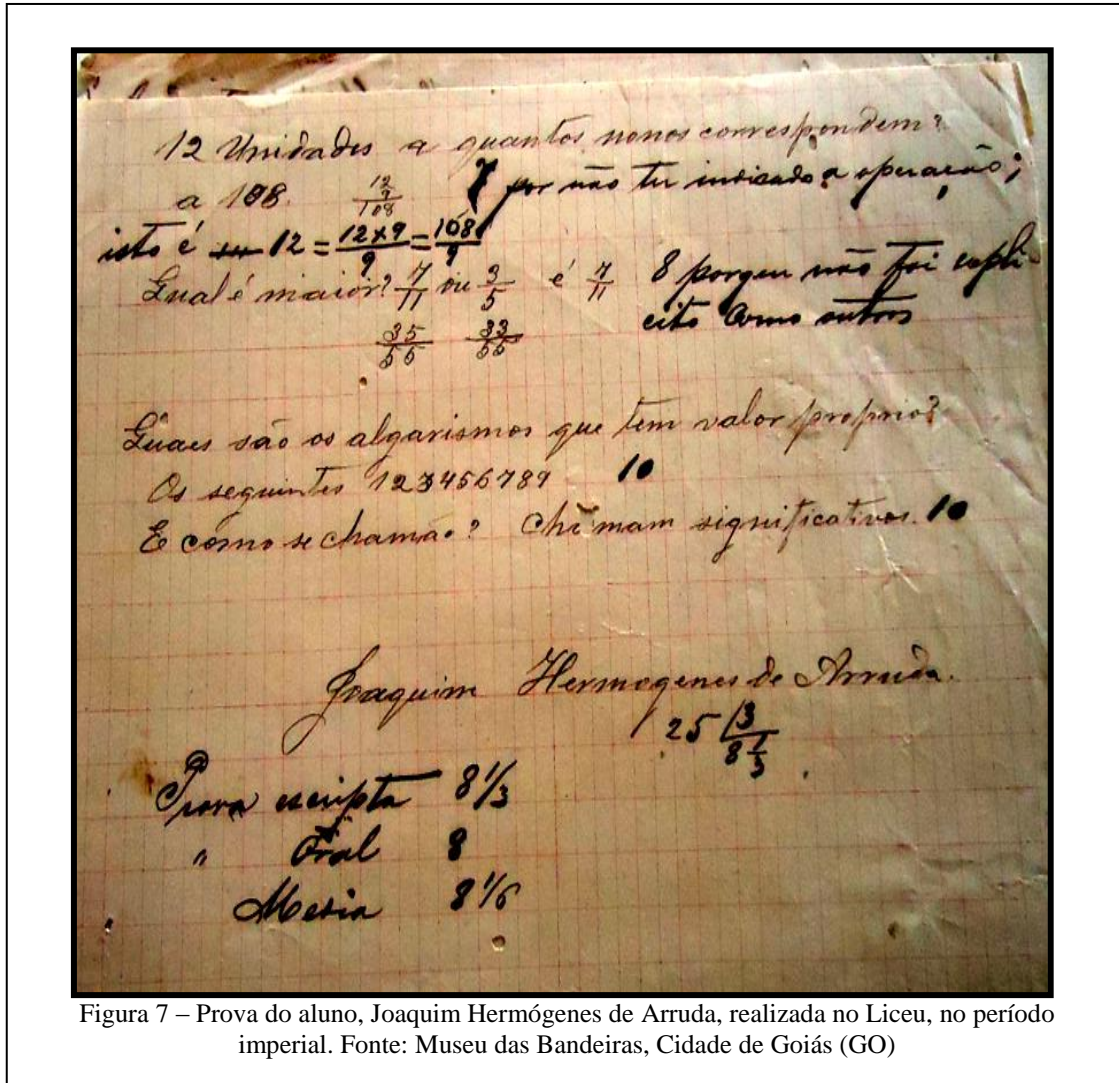 12 Unidades a quantos nonos correspondem?
a 108. 12 9 108 7 por não ter indicado a operação;
isto é 12 = 12×9/9 = 108/9
Qual é maior? 7/11 ou 3/5 é 7/11 8 porque não foi expli
35/55 33/55 cito como outros
Quaes são os algarismos que tem valor proprio?
Os seguintes 123456789 10
E como se chamão? Chamam significativos. 10
Joaquim Hermogenes de Arruda.
25 3
8 1/3
Prova escripta 8 1/3
" Oral 8
Media 8 1/6
Figura 7 – Prova do aluno, Joaquim Hermógenes de Arruda, realizada no Liceu, no período
imperial. Fonte: Museu das Bandeiras, Cidade de Goiás (GO)